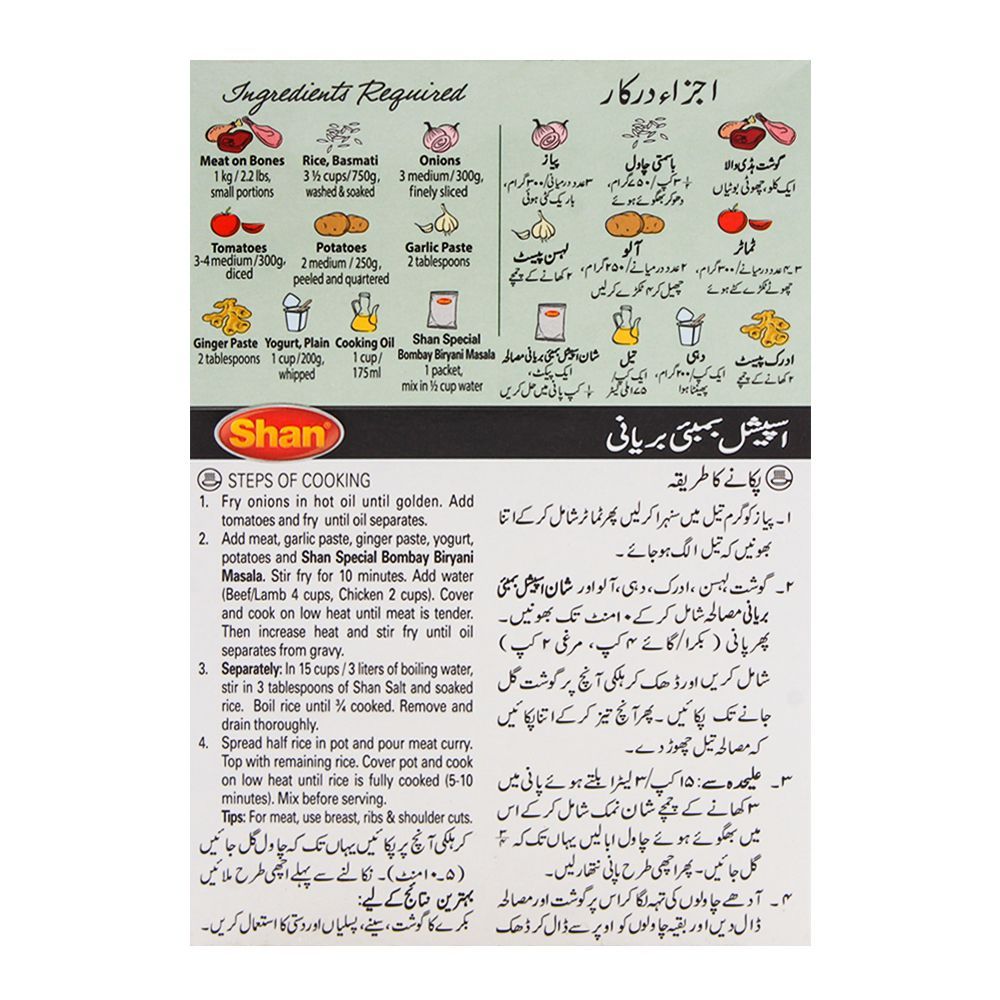 Ingredients Required
Meat on Bones
1 kg / 2.2 lbs,
small portions
Rice, Basmati
3 ½ cups/750g,
washed & soaked
Onions
3 medium/300g,
finely sliced
Tomatoes
3-4 medium/300g,
diced
Potatoes
2 medium / 250g,
peeled and quartered
Garlic Paste
2 tablespoons
Ginger Paste
2 tablespoons
Yogurt, Plain
1 cup /200g,
whipped
Cooking Oil
1 cup /
175ml
Shan Special
Bombay Biryani Masala
1 packet,
mix in ½ cup water
اجزاء درکار
گوشت ہڈی والا
ایک کلو، چھوٹی بوٹیاں
باسمتی چاول
۳ ۱/۲ کپ/۷۵۰ گرام،
دھو کر بھگوئے ہوئے
پیاز
۳ عدد درمیانی/۳۰۰ گرام،
باریک کٹی ہوئی
ٹماٹر
۳-۴ عدد درمیانے/۳۰۰ گرام،
چھوٹے ٹکڑے کٹے ہوئے
آلو
۲ عدد درمیانے/۲۵۰ گرام،
چھیل کر ۴ ٹکڑے کرلیں
لہسن پیسٹ
۲ کھانے کے چمچے
ادرک پیسٹ
۲ کھانے کے چمچے
دہی
ایک کپ/۲۰۰ گرام،
پھینٹا ہوا
تیل
ایک کپ/
۱۷۵ ملی لیٹر
شان اسپیشل بمبئی بریانی مصالحہ
ایک پیکٹ،
۱/۲ کپ پانی میں حل کریں
Shan
اسپیشل بمبئی بریانی
STEPS OF COOKING
1. Fry onions in hot oil until golden. Add
tomatoes and fry until oil separates.
2. Add meat, garlic paste, ginger paste, yogurt,
potatoes and Shan Special Bombay Biryani
Masala. Stir fry for 10 minutes. Add water
(Beef/Lamb 4 cups, Chicken 2 cups). Cover
and cook on low heat until meat is tender.
Then increase heat and stir fry until oil
separates from gravy.
3. Separately: In 15 cups / 3 liters of boiling water,
stir in 3 tablespoons of Shan Salt and soaked
rice. Boil rice until ¾ cooked. Remove and
drain thoroughly.
4. Spread half rice in pot and pour meat curry.
Top with remaining rice. Cover pot and cook
on low heat until rice is fully cooked (5-10
minutes). Mix before serving.
Tips: For meat, use breast, ribs & shoulder cuts.
پکانے کا طریقہ
۱۔ پیاز کو گرم تیل میں سنہرا کرلیں پھر ٹماٹر شامل کرکے اتنا
بھونیں کہ تیل الگ ہوجائے ۔
۲۔ گوشت لہسن ، ادرک ، دہی ، آلو اور شان اسپیشل بمبئی
بریانی مصالحہ شامل کرکے ۱۰ منٹ تک بھونیں۔
پھر پانی ( بکرا/گائے ۴ کپ، مرغی ۲ کپ )
شامل کریں اور ڈھک کر ہلکی آنچ پر گوشت گل
جانے تک پکائیں ۔ پھر آنچ تیز کرکے اتنا پکائیں
کہ مصالحہ تیل چھوڑ دے ۔
۳۔ علیحدہ سے: ۱۵ کپ/۳ لیٹر ابلتے ہوئے پانی میں
۳ کھانے کے چمچے شان نمک شامل کرکے اس
میں بھگوئے ہوئے چاول ابالیں یہاں تک کہ ۳/۴
گل جائیں۔ پھر اچھی طرح پانی نتھار لیں۔
۴۔ آدھے چاولوں کی تہہ لگا کر اس پر گوشت اور مصالحہ
ڈال دیں اور بقیہ چاولوں کو اوپر سے ڈال کر ڈھک
کر ہلکی آنچ پر پکائیں یہاں تک کہ چاول گل جائیں
(۵۔۱۰ منٹ)۔ نکالنے سے پہلے اچھی طرح ملائیں
بہترین نتائج کے لیے:
بکرے کا گوشت، سینے، پسلیاں اور دستی کا استعمال کریں۔